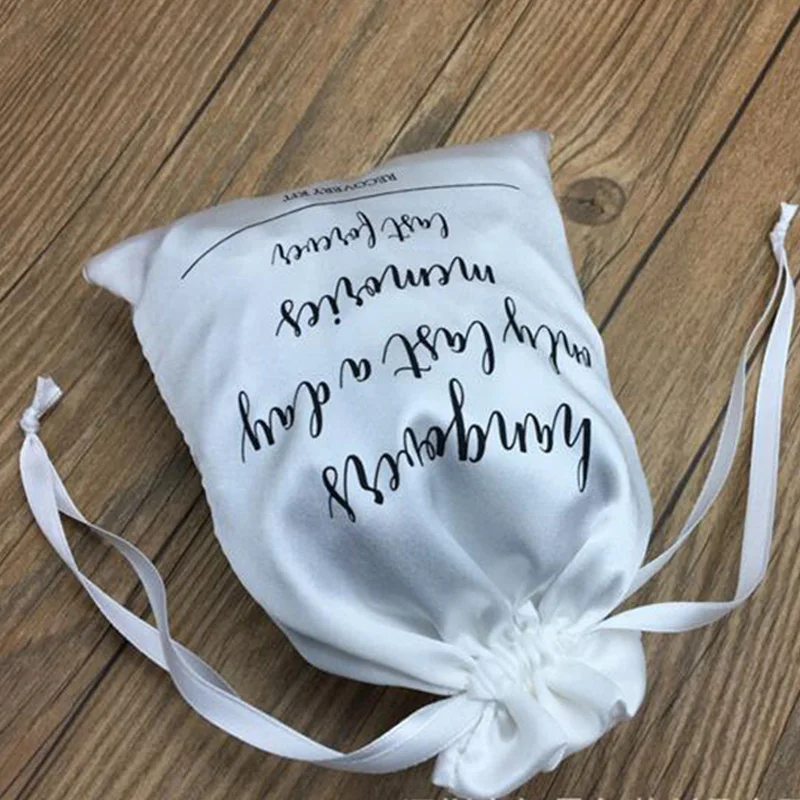 hangovers
only last a day
memories
last forever
RECOVERY KIT